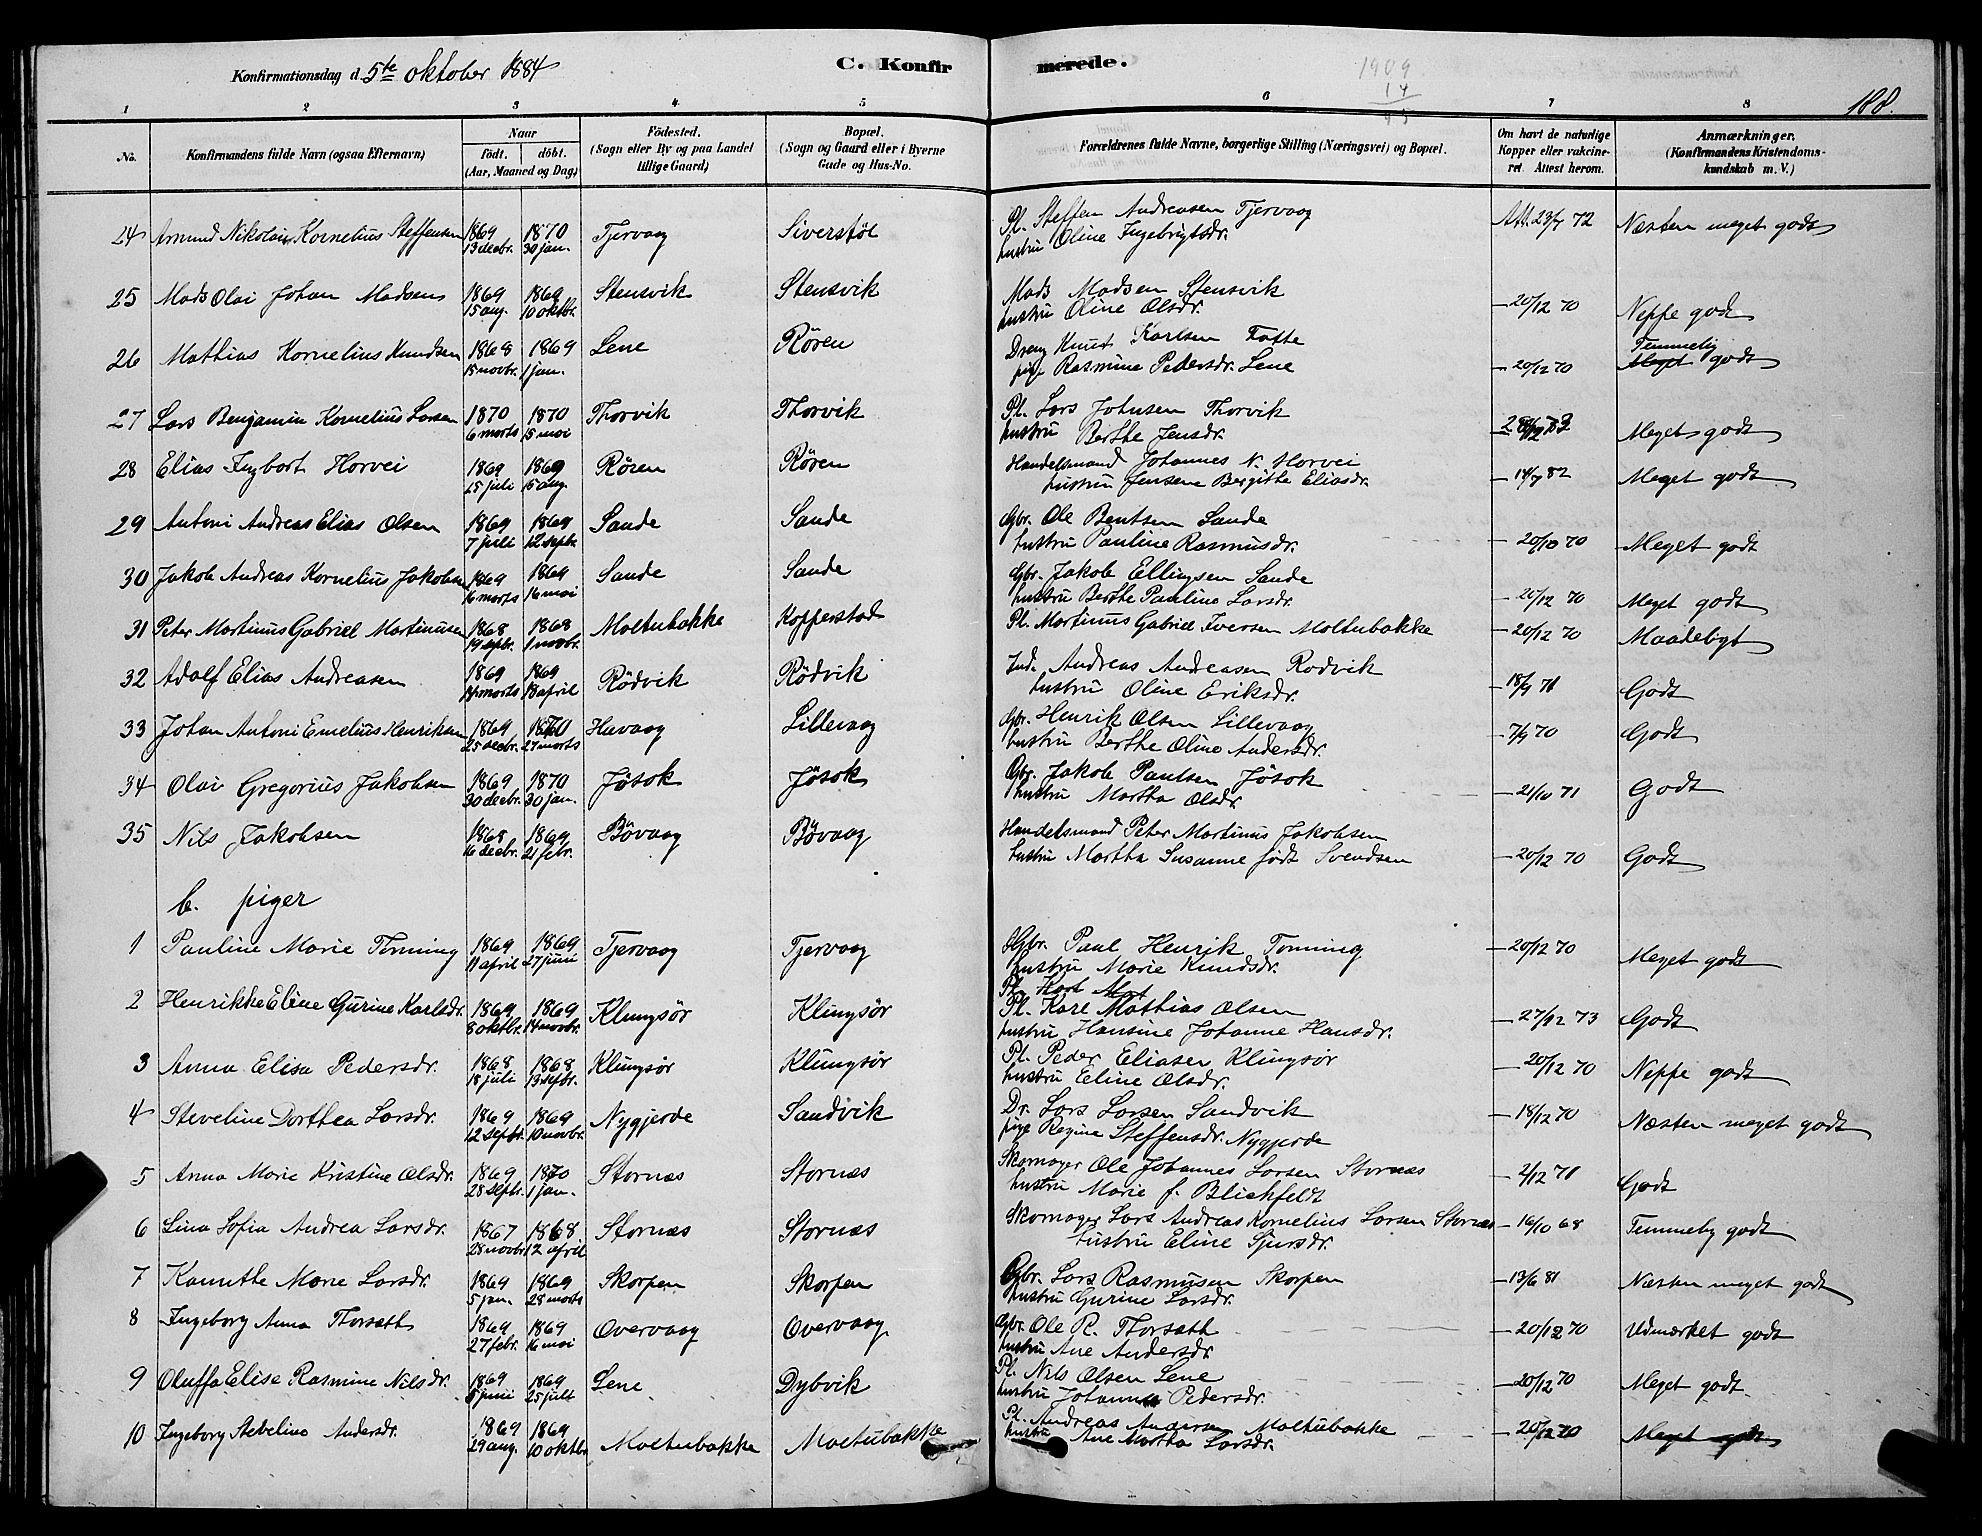 Konfirmationsdag d. 5te oktober 1884
C. Konfir merede.
1909
14
188.
1 2 3 4 5 6 7 8
No. Konfirmandens fulde Navn (ogsaa Efternavn) Naar födt. döbt. (Aar, Maaned og Dag) Födested. (Sogn eller By og paa Landet tillige Gaard) Bopæl. (Sogn og Gaard eller i Byerne Gade og Hus-No. Forældrenes fulde Navne, borgerlige Stilling (Næringsvei) og Bopæl. Om havt de naturlige Kopper eller vakcineret. Attest herom. Anmærkninger. (Konfirmandens Kristendomskundskab m. V.)
24 Amund Nikolai Kornelius Steffensen 1869 13 decbr. 1870 30 jan. Tjervaag Siverstöl Pl. Steffen Andreasen Tjervaag
hustru Oline Ingebrigtsdr. Att. 23/7 72 Næsten meget godt
25 Mads Olai Johan Madsen 1869 15 aug. 1869 10 oktbr. Stensvik Stensvik Mads Madsen Stensvik
hustru Oline Olsdr. — 20/12 70 Neppe godt
26 Mathias Kornelius Knudsen 1868 15 novbr. 1869 1 jan. Lene Rören Dreng Knut Karlsen Tofte
pige Rasmine Pedersdr. Lene — 20/12 70 Temmelig Meget godt
27 Lars Benjamin Kornelius Larsen 1870 6 marts 1870 15 mai Thorvik Thorvik Pl. Lars Johnsen Thorvik
hustru Berthe Jensdr. Meget godt
28 Elias Ingbart Horvei 1869 25 juli 1869 15 aug. Rören Rören Handelsmand Johannes N. Horvei
hustru Jensene Bergitte Eliasdr. — 14/7 82 Meget godt
29 Antoni Andreas Elias Olsen 1869 7 juli 1869 12 septbr. Sande Sande Gbr. Ole Bentsen Sande
hustru Pauline Rasmusdr. — 20/10 70 Meget godt
30 Jakob Andreas Kornelius Jakobsen 1869 16 marts 1869 16 mai Sande Sande Gbr. Jakob Ellingsen Sande
hustru Berthe Pauline Larsdr. — 20/12 70 Meget godt
31 Peter Martinus Gabriel Martinusen 1868 19 septbr. 1868 1 novbr. Moltubakke Kopperstad Pl. Martinus Gabriel Iversen Moltubakke — 20/12 70 Maadeligt
32 Adolf Elias Andreasen 1869 14 marts 1869 18 april Rödvik Rödvik Ind. Andreas Andreasen Rodvik
hustru Oline Eriksdr. — 18/9 71 Godt
33 Johan Antoni Emelius Henriksen 1869 25 decbr. 1870 27 marts Havaag Lillevaag Gbr. Henrik Olsen Lillevaag
hustru Berthe Oline Andersdr. — 7/9 70 Godt
34 Olai Gregorius Jakobsen 1869 30 decbr. 1870 30 jan. Jösok Jösok Gbr. Jakob Paulsen Jösok
hustru Martha Olsdr. — 21/10 71 Godt
35 Nils Jakobsen 1868 16 decbr. 1869 21 febr. Bövaag Bövaag Handelsmand Peter Martinus Jakobsen
hustru Martha Susanne födt Svendsen — 20/12 70 Godt
b. piger
1 Pauline Marie Tönning 1869 11 april 1869 27 juni Tjervaag Tjervaag Gbr. Paul Henrik Tonning
hustru Marie Knudsdr. — 20/12 70 Meget godt
2 Henrikke Eline Gurine Karlsdr. 1869 8 oktbr. 1869 14 novbr. Klungsör Klungsör Pl. Karl Mathias Olsen
hustru Hansine Johanne Hansdr. — 27/12 73 Godt
3 Anna Elisa Pedersdr. 1868 18 juli 1868 13 septbr. Klungsör Klungsör Pl. Peder Eliasen Klungsör
hustru Eline Olsdr. — 20/12 70 Neppe godt
4 Steveline Dorthea Larsdr. 1869 12 septbr. 1869 10 novbr. Nygjerde Sandvik Dr. Lars Larsen Sandvik
pige Regine Steffensdr. Nygjerde — 18/12 70 Næsten meget godt
5 Anna Marie Kristine Olsdr. 1869 28 septbr. 1870 1 jan. Stornæs Stornæs Skomager Ole Johannes Larsen Stornæs
hustru Marie f. Blichfeldt — 2/12 71 Godt
6 Lina Sofia Andrea Larsdr. 1867 28 novbr. 1868 12 april Stornæs Stornæs Skomager Lars Andreas Kornelius Larsen Stornæs
hustru Eline Sjursdr. — 16/10 68 Temmelig godt
7 Kanutte Marie Larsdr. 1869 5 jan. 1869 28 marts Skorpen Skorpen Gbr. Lars Rasmusen Skorpen
hustru Gurine Larsdr. — 13/6 81 Næsten meget godt
8 Ingeborg Anna Thorsæth 1869 27 febr. 1869 16 mai Overvaag Overvaag Gbr. Ole R. Thorsæth
hustru Ane Andersdr. — 20/12 70 Udmærket godt
9 Oluffa Elise Rasmine Nilsdr. 1869 5 juni 1869 25 juli Lene Dybvik Pl. Nils Olsen Lene
hustru Johanna Pedersdr. — 20/12 70 Meget godt
10 Ingeborg Stebeline Andersdr. 1869 29 aug. 1869 10 oktbr. Moltubakke Moltubakke Pl. Andreas Andersen Moltubakke
hustru Ane Martha Larsdr. — 20/12 70 Meget godt